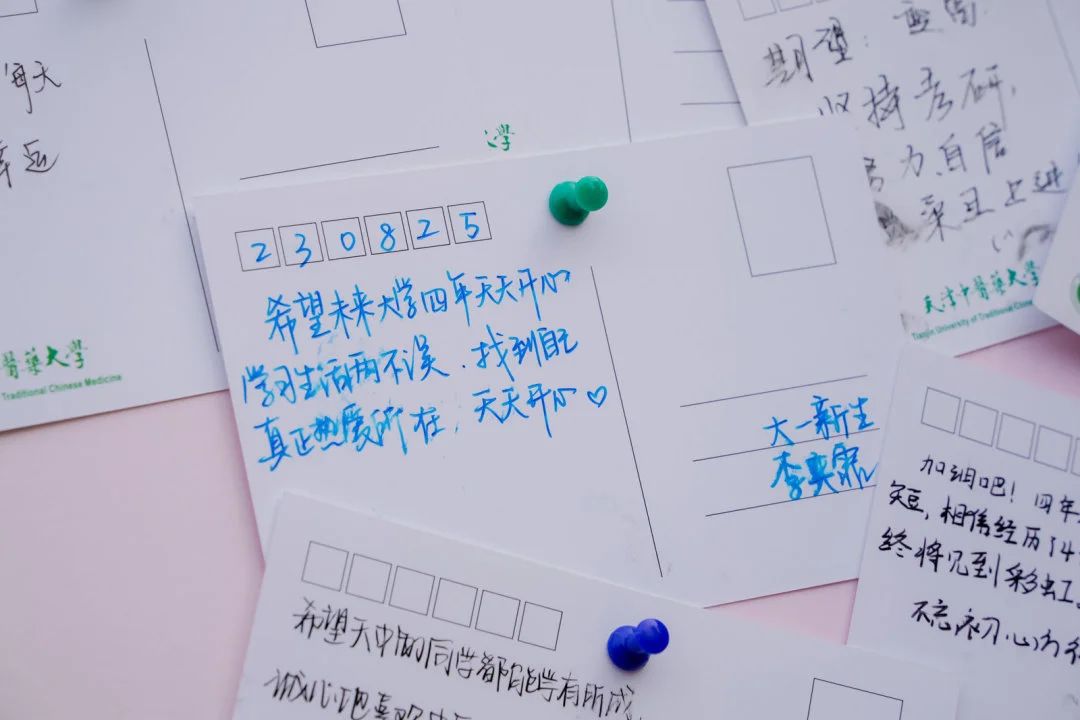 每天
幸运
醫藥大學
Traditional Chinese Medicine
學
期望:
坚持考研,
努力,自信
采且上进
天津中醫藥大學
Tianjin University of Traditional Chine
230825
希望未来大学四年天天开心
学习生活两不误.找到自己
真正热爱所在,天天开心♡
大一新生
李奕霏
加油吧!四年
短,相信经历了4
终将见到彩虹
不忘初心方
希望天中的同学都能学有所成